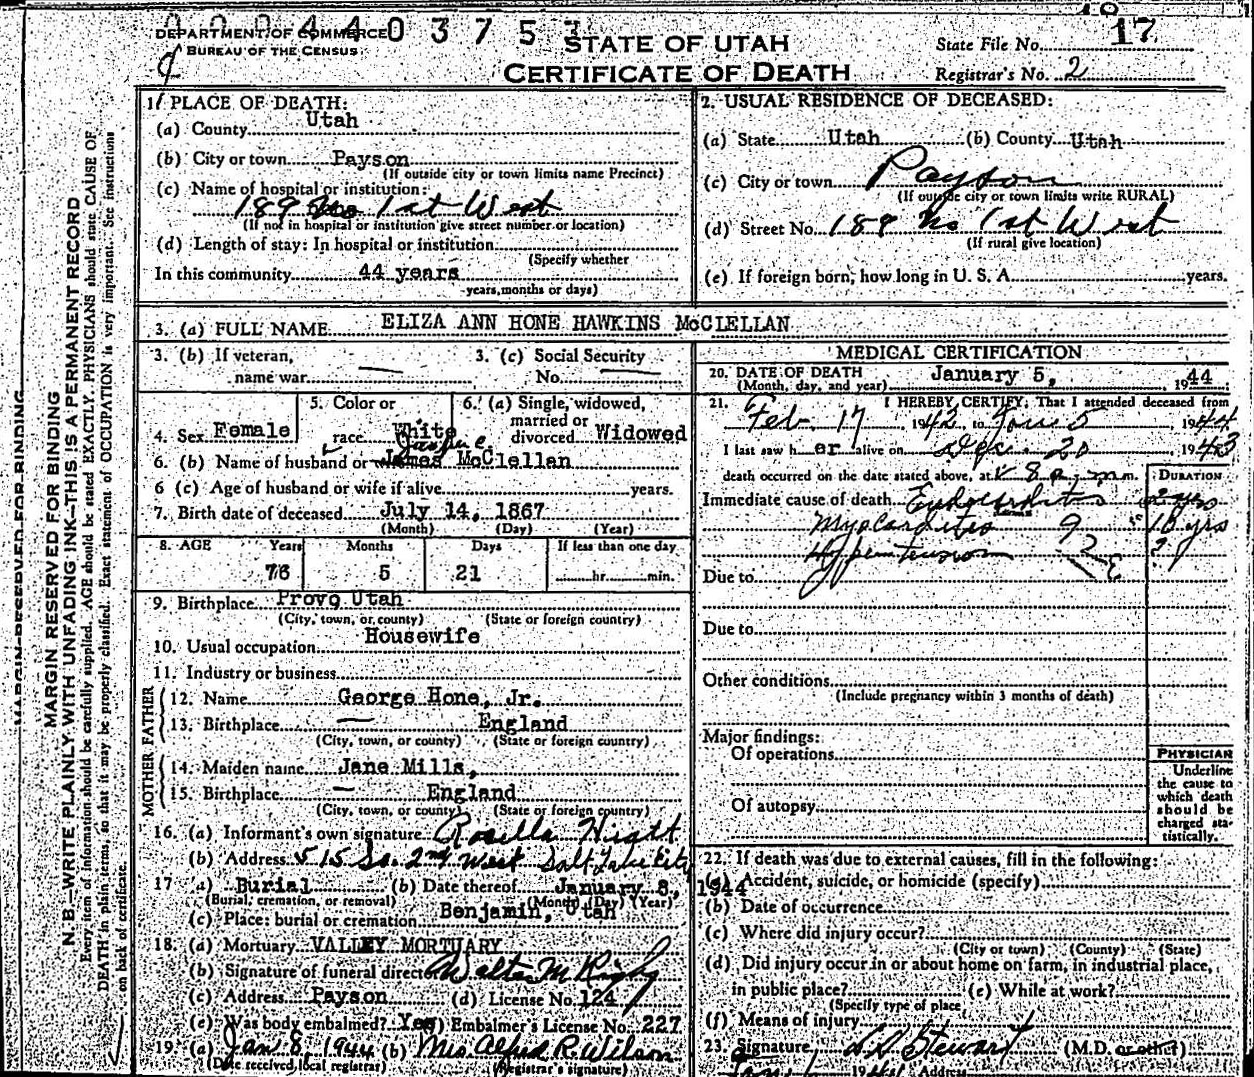 0 0 0 4 4 0 3 7 5 3
DEPARTMENT OF COMMERCE
BUREAU OF THE CENSUS
STATE OF UTAH
CERTIFICATE OF DEATH
State File No. 17
Registrar's No. 2
MARGIN RESERVED FOR BINDING
N. B.—WRITE PLAINLY WITH UNFADING INK—THIS IS A PERMANENT RECORD
Every item of information should be carefully supplied. AGE should be stated EXACTLY. PHYSICIANS should state CAUSE OF
DEATH in plain terms, so that it may be properly classified. Exact statement of OCCUPATION is very important. See instructions
on back of certificate.
1. PLACE OF DEATH:
(a) County Utah
(b) City or town Payson
(If outside city or town limits name Precinct)
(c) Name of hospital or institution:
189 No 1st West
(If not in hospital or institution give street number or location)
(d) Length of stay: In hospital or institution
(Specify whether
In this community 44 years
years, months or days)
2. USUAL RESIDENCE OF DECEASED:
(a) State Utah (b) County Utah
(c) City or town Payson
(If outside city or town limits write RURAL)
(d) Street No. 189 No 1st West
(If rural give location)
(e) If foreign born, how long in U. S. A. years.
3. (a) FULL NAME ELIZA ANN HONE HAWKINS McCLELLAN
3. (b) If veteran, name war —
3. (c) Social Security No. —
4. Sex Female
5. Color or race White
6. (a) Single, widowed, married or divorced Widowed
6. (b) Name of husband or wife James McClellan
6 (c) Age of husband or wife if alive years.
7. Birth date of deceased July 14, 1867
(Month) (Day) (Year)
8. AGE Years Months Days If less than one day
76 5 21 hr. min.
9. Birthplace Provo Utah
(City, town, or county) (State or foreign country)
10. Usual occupation Housewife
11. Industry or business
FATHER
12. Name George Hone, Jr.
13. Birthplace — England
(City, town, or county) (State or foreign country)
MOTHER
14. Maiden name Jane Mills,
15. Birthplace — England
(City, town, or county) (State or foreign country)
16. (a) Informant's own signature Rosella Hiatt
(b) Address 515 So. 2nd West Salt Lake City
17 (a) Burial (b) Date thereof January 8, 1944
(Burial, cremation, or removal) (Month) (Day) (Year)
(c) Place: burial or cremation Benjamin, Utah
18. (a) Mortuary VALLEY MORTUARY
(b) Signature of funeral director Walter M Rigby
(c) Address Payson (d) License No. 124
(e) Was body embalmed? Yes (f) Embalmer's License No. 227
19. (a) Jan 8, 1944 (b) Mrs. Alfred R. Wilson
(Date received local registrar) (Registrar's signature)
MEDICAL CERTIFICATION
20. DATE OF DEATH January 5, 1944
(Month, day, and year)
21. I HEREBY CERTIFY, That I attended deceased from
Feb. 17, 1942, to Jan 5, 1944
I last saw her alive on Dec. 20, 1943
death occurred on the date stated above, at 8 a.m. m.
DURATION
Immediate cause of death Endocarditis 2 yrs
Myocarditis 10 yrs
Hypertension ?
Due to
Due to
Other conditions
(Include pregnancy within 3 months of death)
Major findings:
Of operations
Of autopsy
PHYSICIAN
Underline
the cause to
which death
should be
charged sta-
tistically.
22. If death was due to external causes, fill in the following:
(a) Accident, suicide, or homicide (specify)
(b) Date of occurrence
(c) Where did injury occur?
(City or town) (County) (State)
(d) Did injury occur in or about home on farm, in industrial place,
in public place? (e) While at work?
(Specify type of place
(f) Means of injury
23. Signature L D Stewart (M.D. or other)
Address